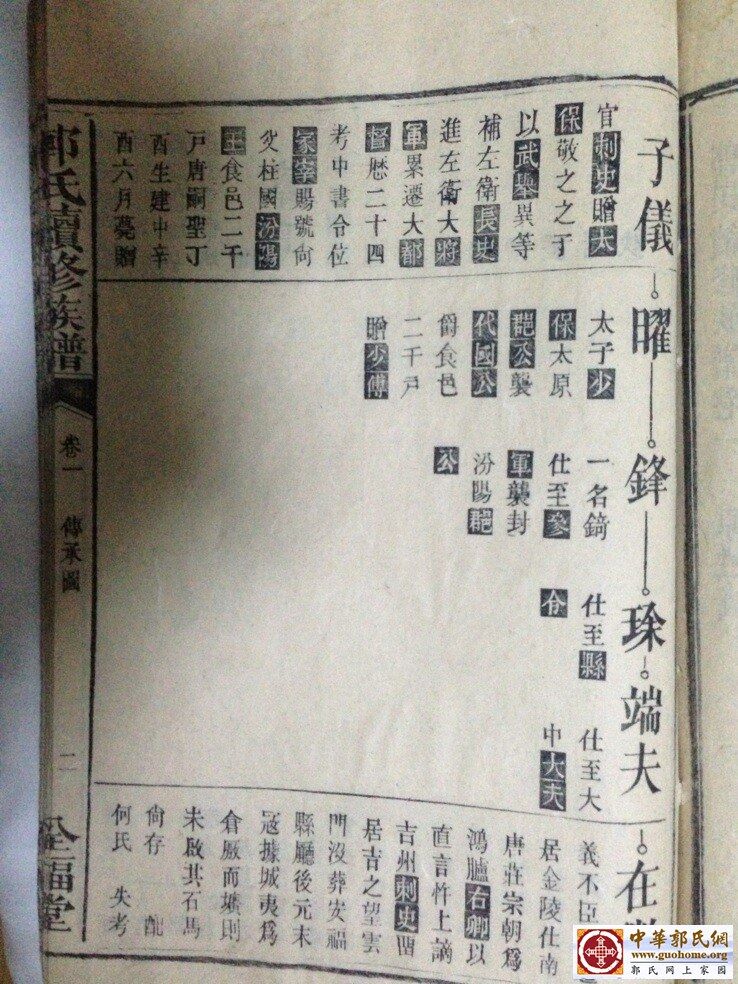 子儀
官刺史贈太
保敬之之子
以武舉異等
補左衛長史
進左衛大將
軍累遷大都
督歷二十四
考中書令位
冢宰賜號尙
父柱國汾陽
王食邑二千
戸唐嗣聖丁
酉生建中辛
酉六月薨贈
曜
太子少
保太原
郡公襲
代國公
爵食邑
二千戸
贈少傅
鋒
一名錡
仕至參
軍襲封
汾陽郡
公
琜
仕至縣
令
端夫
仕至大
中大夫
在
義不臣
居金陵仕南
唐莊宗朝爲
鴻臚右卿以
直言忤上謫
吉州刺史畱
居吉之望雲
門沒葬安福
縣廳後元末
冦據城夷爲
倉厫而壙則
未啟其石馬
尙存 配
何氏 失考
郭氏續修族譜
卷一 傳承圖
二
全福堂
中華郭氏網
www.guohome.org
郭氏网上家园